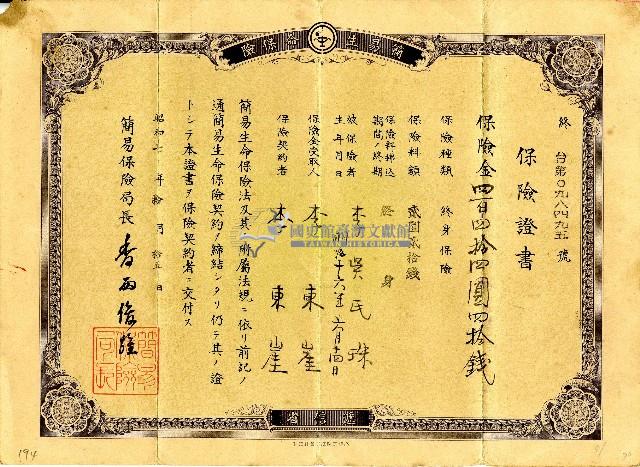 簡易生命保險
終 台第〇九八四九五號
保險證書
保險金四百四拾四圓四拾錢
保險種類 終身保險
保險料額 貳圓貳拾錢
保險料拂込期間ノ終期 終身
被保險者 李吳氏珠
生年月日 明治十六年六月十四日
保險金受取人 本人
保險契約者 李東崖
簡易生命保險法及其ノ附屬法規ニ依リ前記ノ
通簡易生命保險契約ノ締結シタリ仍テ其ノ證
トシテ本證書ヲ保險契約者ニ交付ス
昭和七年拾月拾五日
簡易保險局長
遞信省
國史館臺灣文獻館
TAIWAN HISTORICA
194